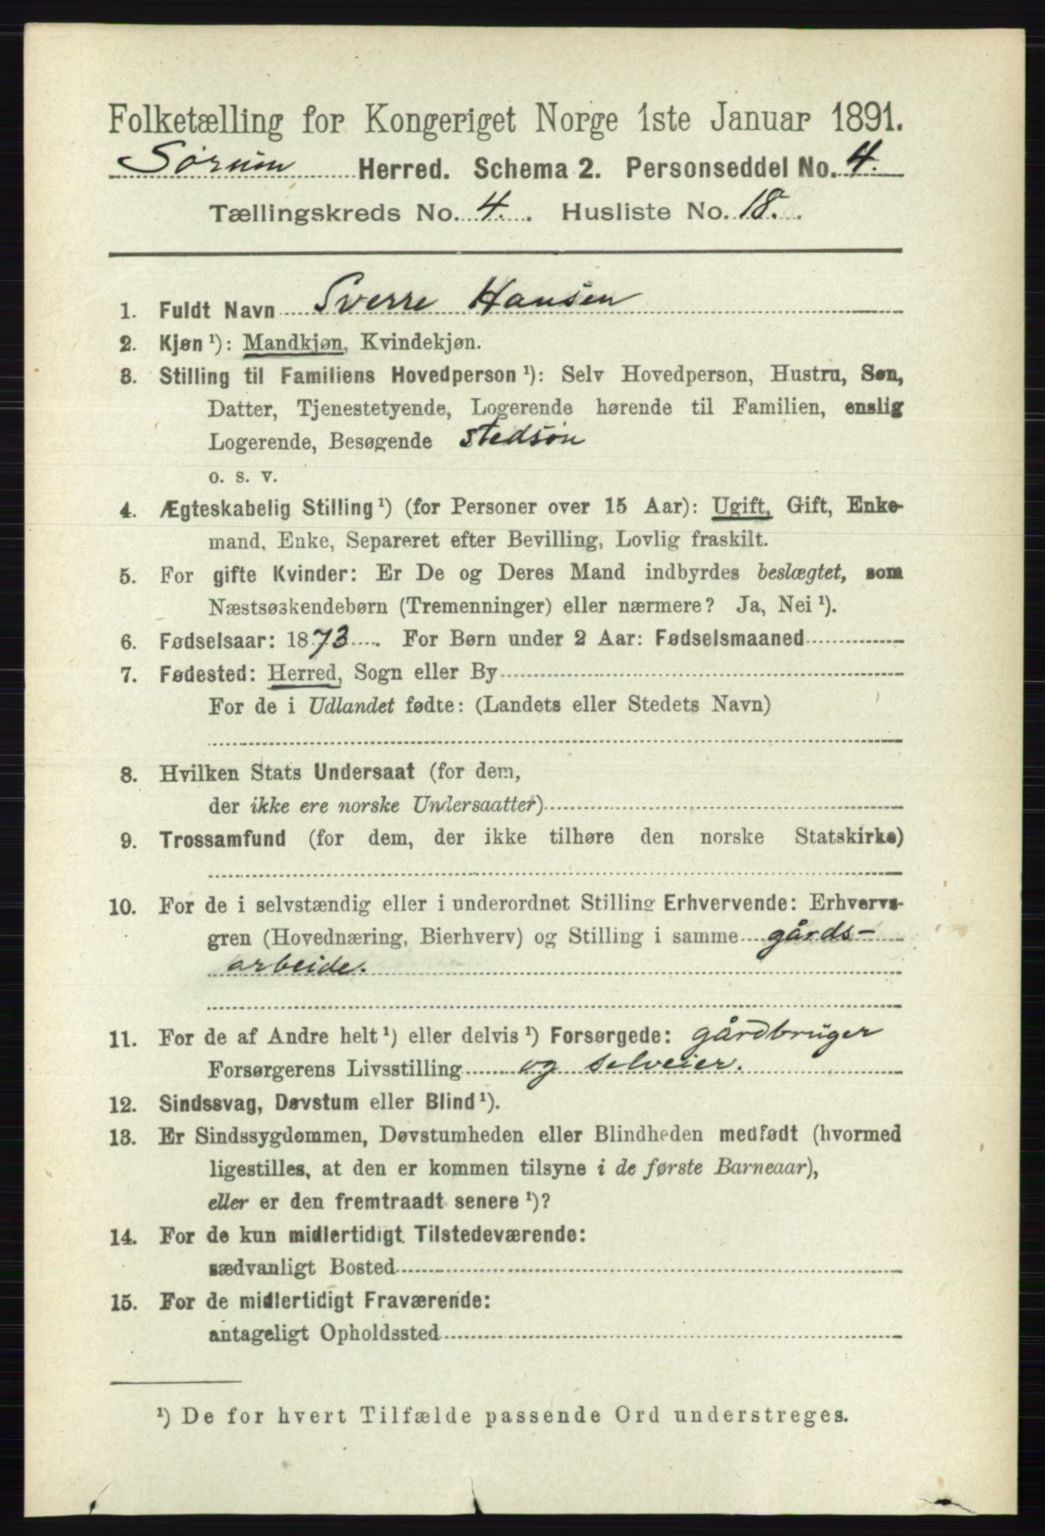 Folketælling for Kongeriget Norge 1ste Januar 1891.
Sørum Herred. Schema 2. Personseddel No. 4.
Tællingskreds No. 4. Husliste No. 18.
1. Fuldt Navn Sverre Hansen
2. Kjøn ¹): Mandkjøn, Kvindekjøn.
3. Stilling til Familiens Hovedperson ¹): Selv Hovedperson, Hustru, Søn,
Datter, Tjenestetyende, Logerende hørende til Familien, enslig
Logerende, Besøgende stedsøn
o. s. v.
4. Ægteskabelig Stilling ¹) (for Personer over 15 Aar): Ugift, Gift, Enke-
mand, Enke, Separeret efter Bevilling, Lovlig fraskilt.
5. For gifte Kvinder: Er De og Deres Mand indbyrdes beslægtet, som
Næstsøskendebørn (Tremenninger) eller nærmere? Ja, Nei ¹).
6. Fødselsaar: 1873. For Børn under 2 Aar: Fødselsmaaned
7. Fødested: Herred, Sogn eller By
For de i Udlandet fødte: (Landets eller Stedets Navn)
8. Hvilken Stats Undersaat (for dem,
der ikke ere norske Undersaatter)
9. Trossamfund (for dem, der ikke tilhøre den norske Statskirke)
10. For de i selvstændig eller i underordnet Stilling Erhvervende: Erhvervs-
gren (Hovednæring, Bierhverv) og Stilling i samme gårds-
arbeide.
11. For de af Andre helt ¹) eller delvis ¹) Forsørgede: gårdbruger
Forsørgerens Livsstilling og selveier.
12. Sindssvag, Døvstum eller Blind ¹).
13. Er Sindssygdommen, Døvstumheden eller Blindheden medfødt (hvormed
ligestilles, at den er kommen tilsyne i de første Barneaar),
eller er den fremtraadt senere ¹)?
14. For de kun midlertidigt Tilstedeværende:
sædvanligt Bosted
15. For de midlertidigt Fraværende:
antageligt Opholdssted
¹) De for hvert Tilfælde passende Ord understreges.